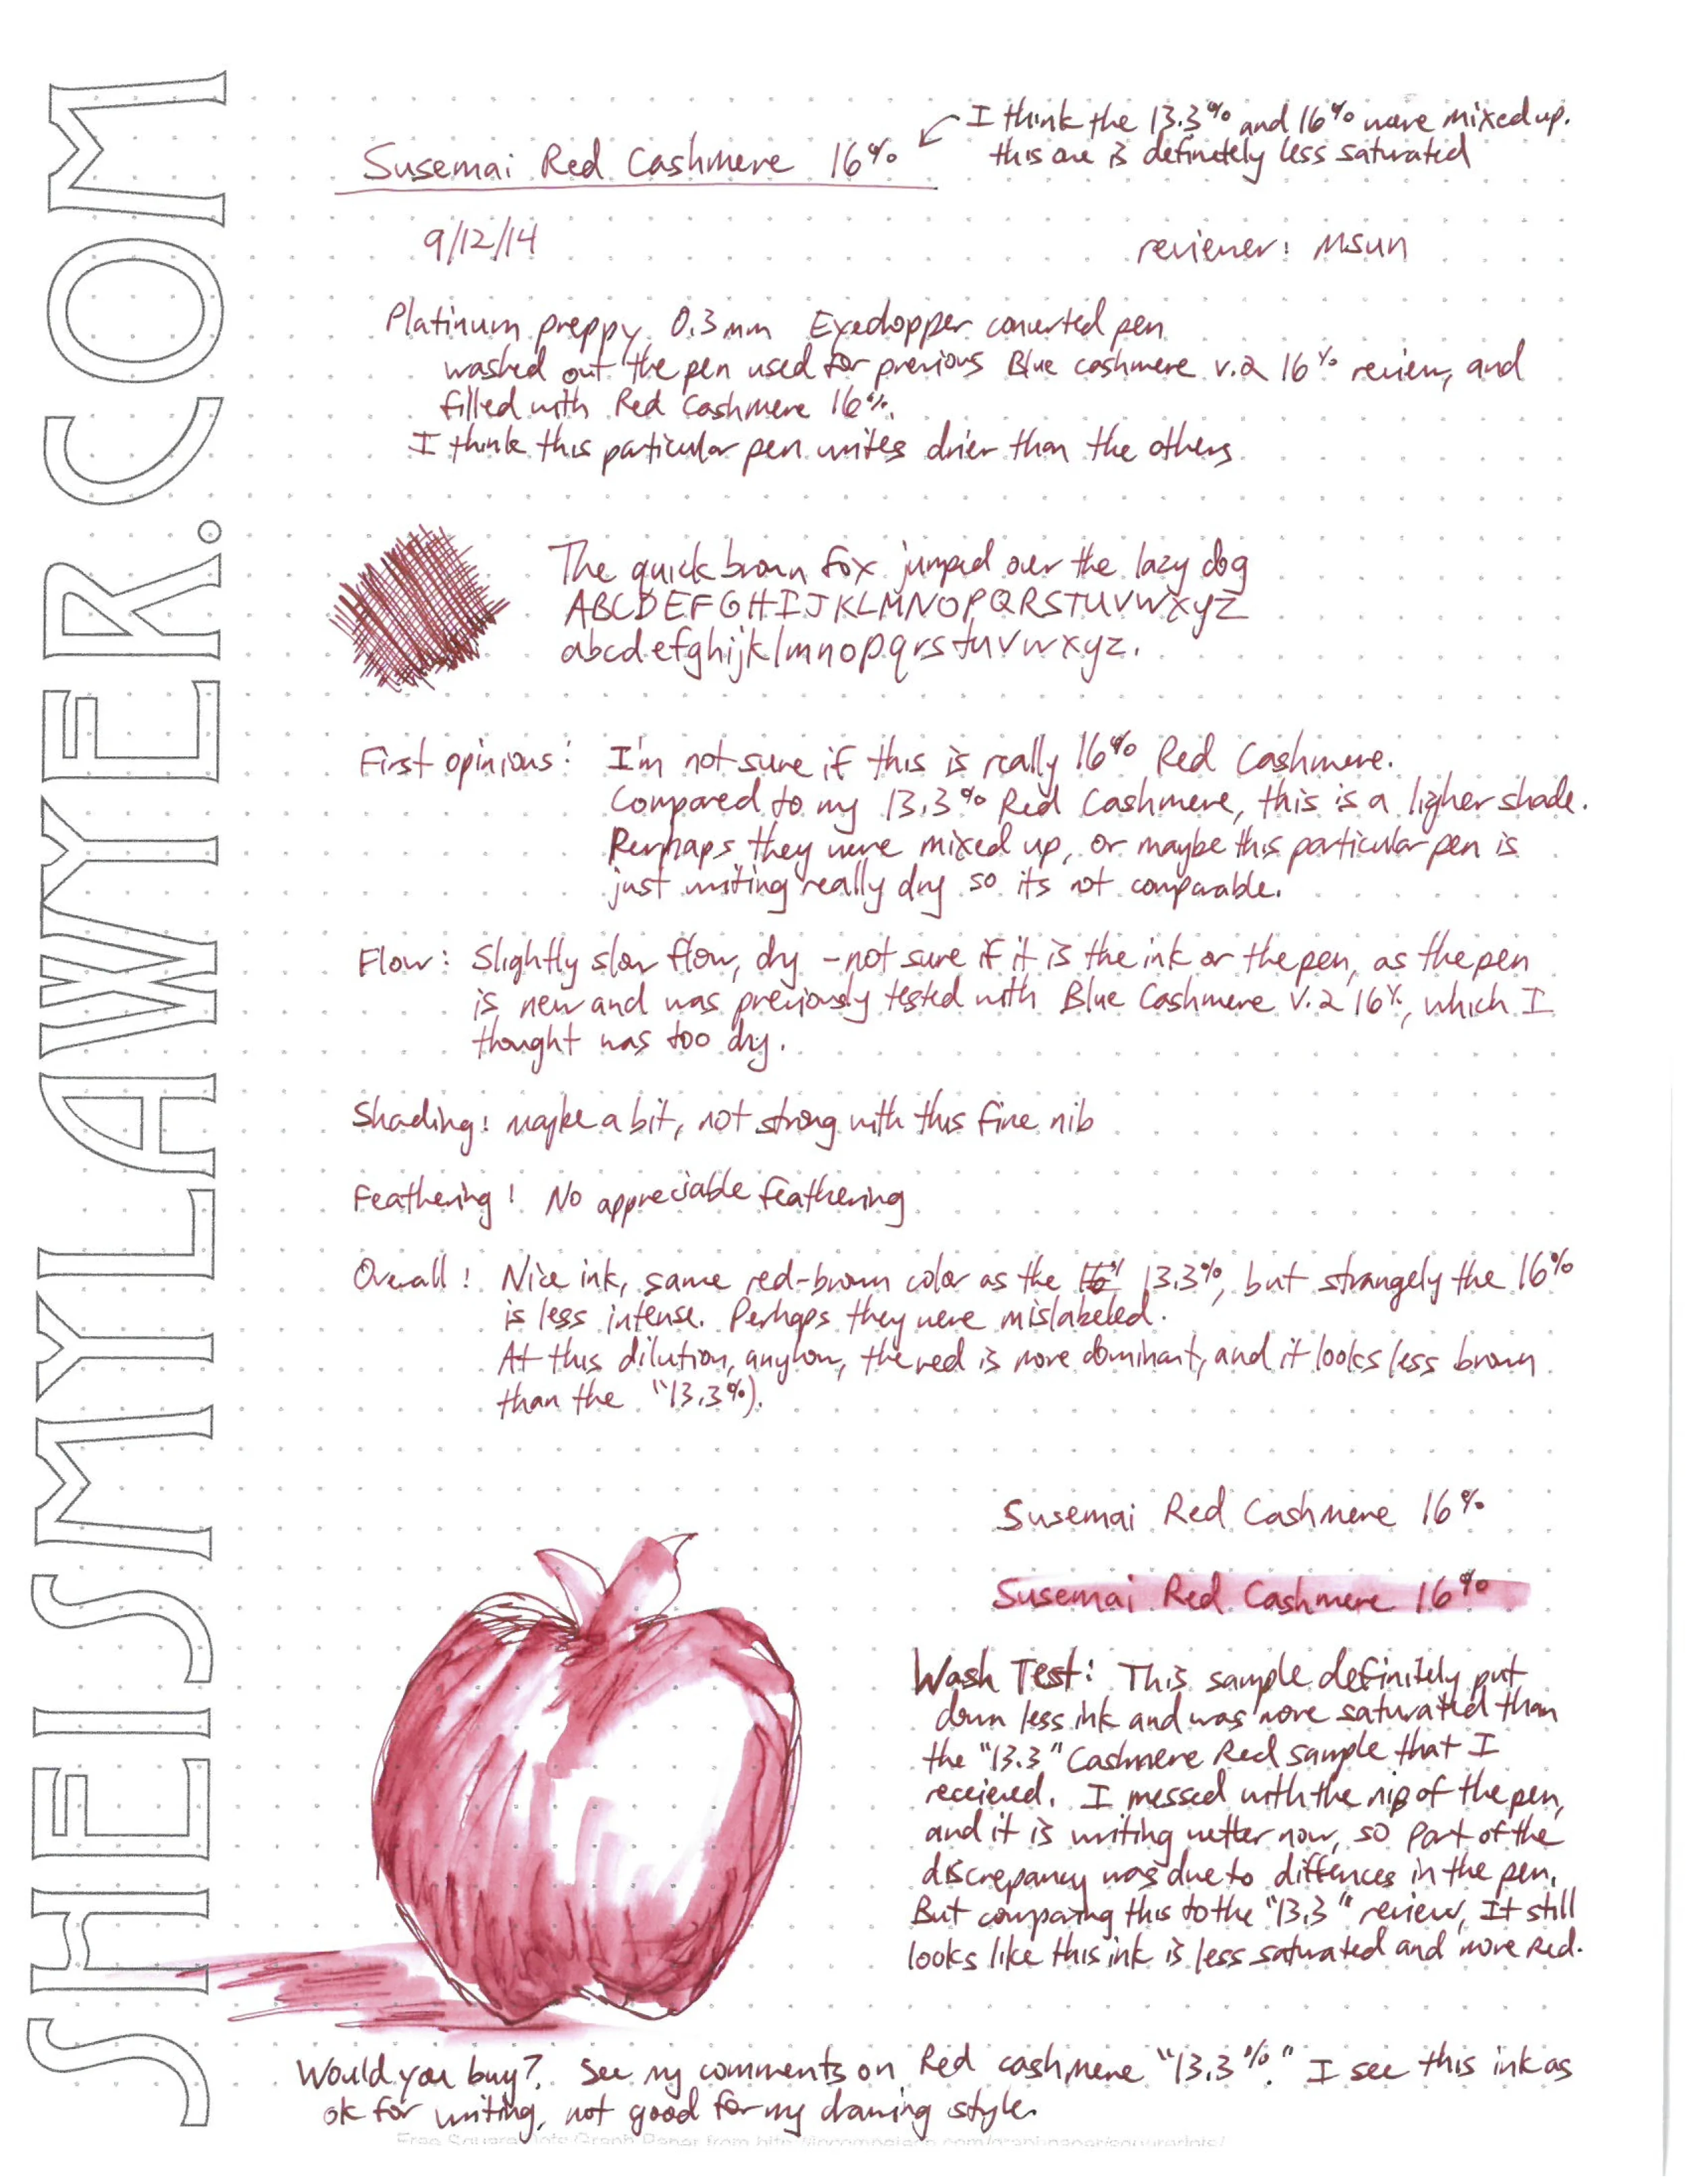 SHEISMYLAWYER.COM
I think the 13.3% and 16% were mixed up.
this one is definitely less saturated
Susemai Red Cashmere 16%
9/12/14
reviewer: Msun
Platinum preppy 0.3mm Eyedopper converted pen
washed out the pen used for previous Blue cashmere v.2 16% review, and
filled with Red Cashmere 16%.
I think this particular pen writes drier than the others
The quick brown fox jumped over the lazy dog
ABCDEFGHIJKLMNOPQRSTUVWXYZ
abcdefghijklmnopqrstuvwxyz.
First opinions: I'm not sure if this is really 16% Red Cashmere.
Compared to my 13.3% Red Cashmere, this is a ligher shade.
Perhaps they were mixed up, or maybe this particular pen is
just writing really dry so its not comparable.
Flow: Slightly slow flow, dry - not sure if it is the ink or the pen, as the pen
is new and was previously tested with Blue Cashmere V.2 16%, which I
thought was too dry.
Shading: maybe a bit, not strong with this fine nib
Feathering: No appreciable feathering
Overall: Nice ink, same red-brown color as the 13.3%, but strangely the 16%
is less intense. Perhaps they were mislabeled.
At this dilution, anyhow, the red is more dominant, and it looks less brown
than the "13.3%).
Susemai Red Cashmere 16%
Susemai Red Cashmere 16%
Wash Test: This sample definitely put
down less ink and was more saturated than
the "13.3" Cashmere Red sample that I
receieved. I messed with the nib of the pen,
and it is writing wetter now, so part of the
discrepancy was due to diffences in the pen.
But comparing this to the "13.3" review, It still
looks like this ink is less saturated and more Red.
Would you buy? See my comments on Red cashmere "13.3%." I see this ink as
ok for writing, not good for my drawing style.
Free Square Dots Graph Paper from http://incompetech.com/graphpaper/squaredots/